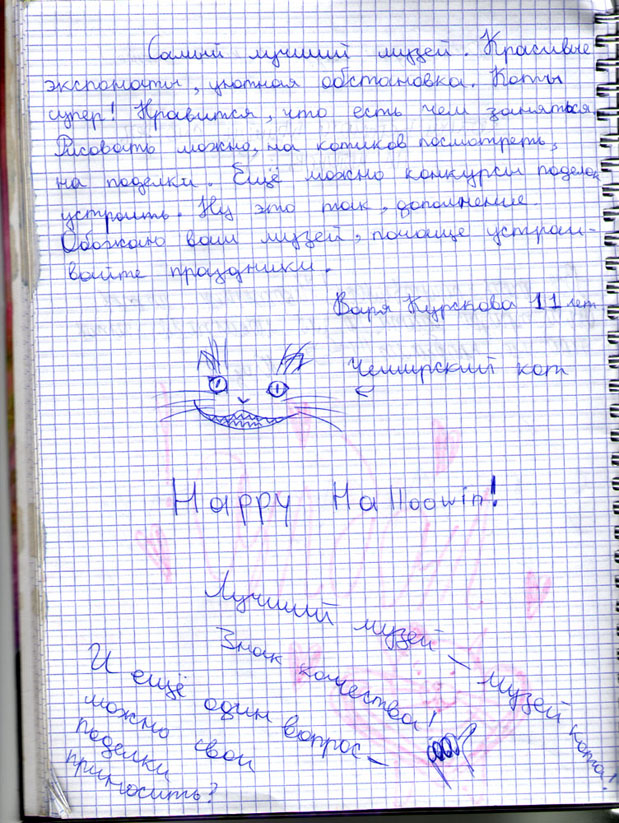 Самый лучший музей. Красивые
экспонаты, уютная обстановка. Коты
супер! Нравится, что есть чем заняться.
Рисовать можно, на котиков посмотреть,
на поделки. Ещё можно конкурсы поделок
устроить. Ну это так, дополнение.
Обожаю ваш музей, почаще устраи-
вайте праздники.
Варя Курскова 11 лет
Чеширский кот
Happy Halloowin!
Лучший музей – музей кота!
Знак качества!
И ещё один вопрос –
можно свои
поделки
приносить?